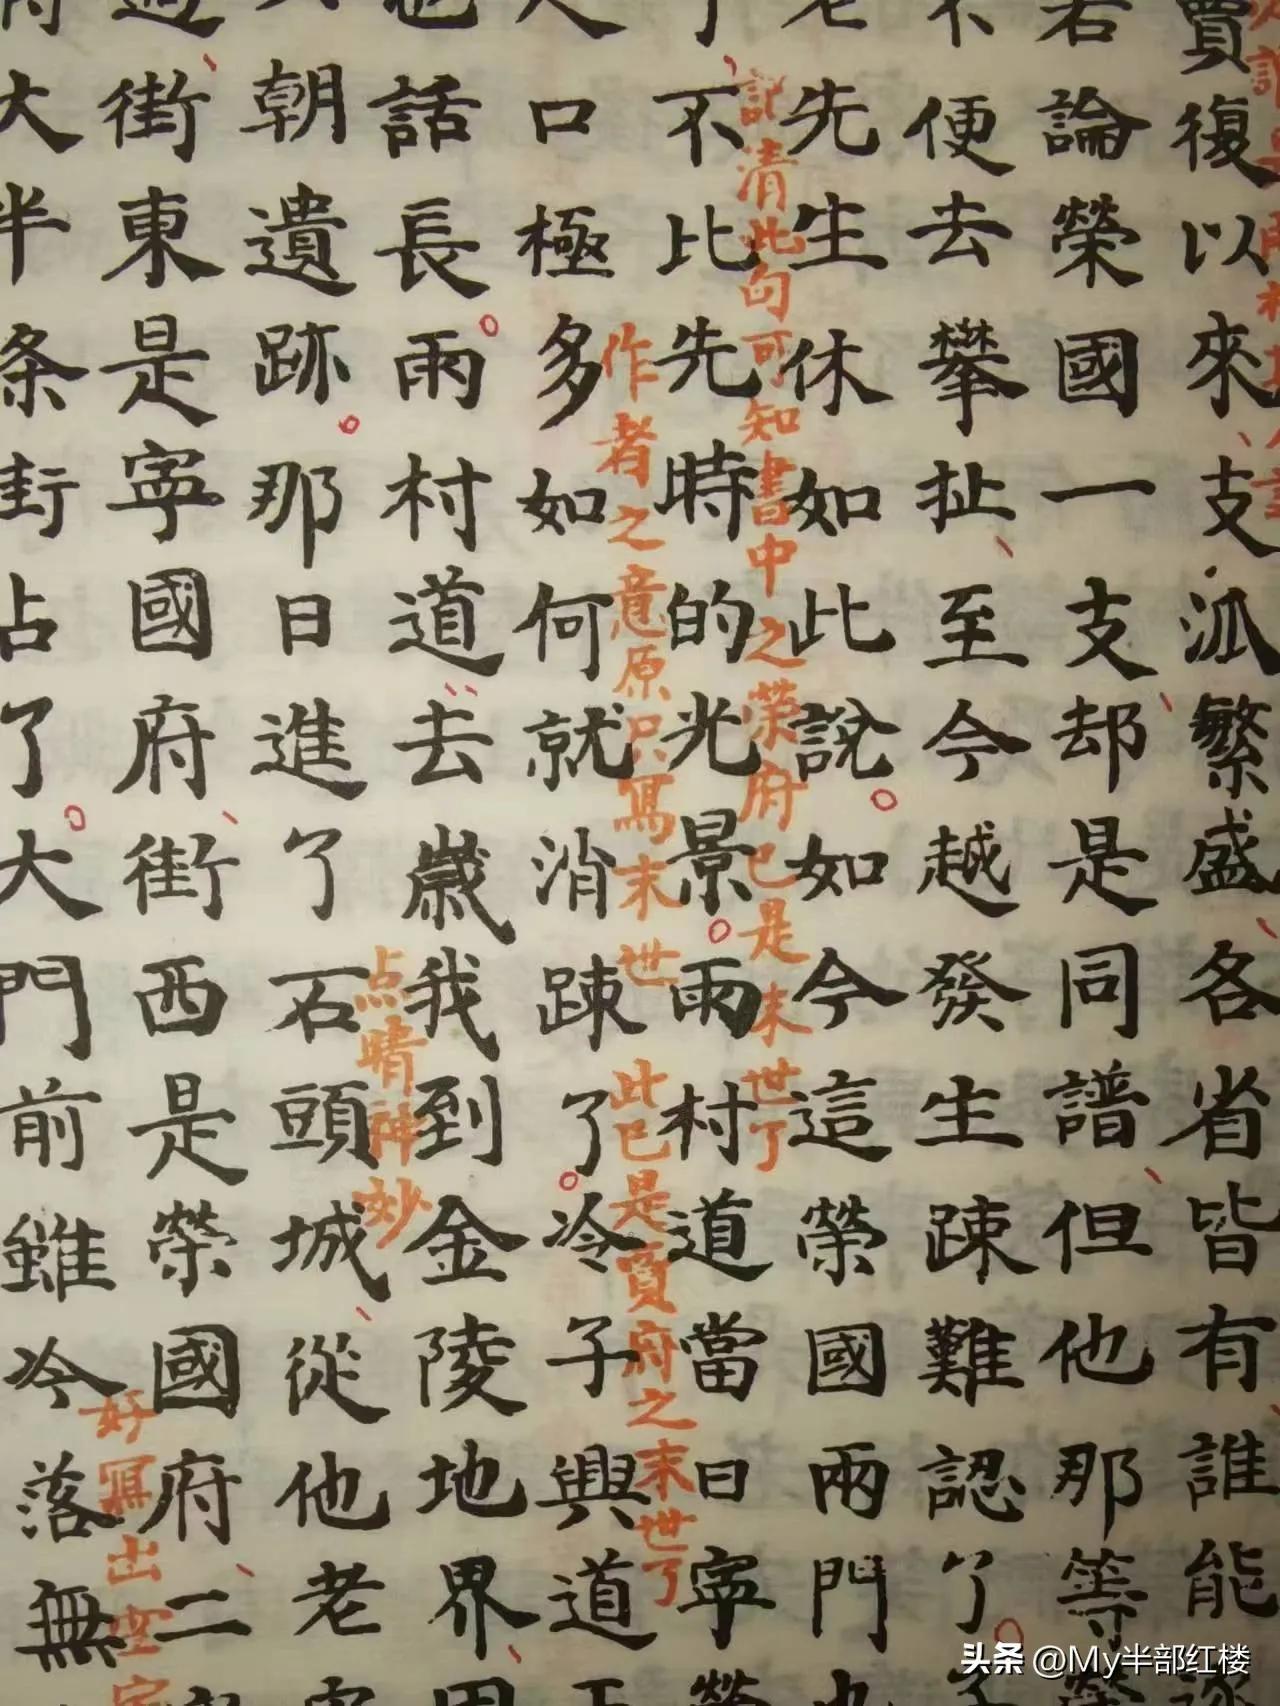 賈復以來支派繁盛各省皆有誰能
若論榮國一支却是同譜但他那等
不便去攀扯至今越發生踈難認了
老先生休如此說如今這榮國兩門
記清此句可知書中之榮府已是末世了
了不比先時的光景雨村道當日寧榮
作者之意原只寫末世 此已是賈府之末世了
人口極多如何就消踈了冷子興道正
也話長雨村道去歲我到金陵地界因
点晴神妙
朝遺跡那日進了石頭城從他老
街東是寧國府街西是榮國府二
好寫出空宅
大半条街占了大門前雖冷落無
头条 @My半部红楼